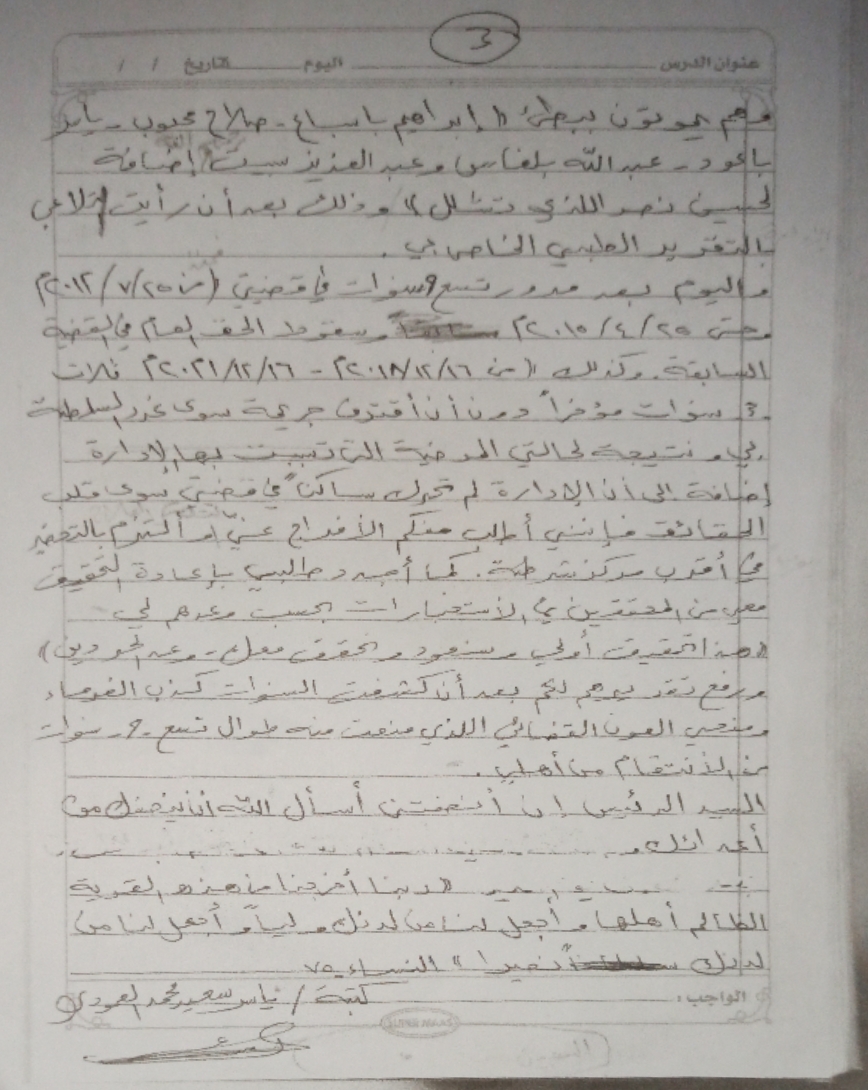 3
عنوان الدرس اليوم التاريخ / /
وهم يموتون ببطئ (( إبراهيم باسباع - صلاح محبوب - ياسر
باعود - عبدالله بلفاس وعبدالعزيز سبيت إضافة
لحسين نصر اللذي تشلل )) وذلك بعد أن رأيت تلاعبي
بالتقرير الطبي الخاص بي .
واليوم بعد مرور تسع 9 سنوات في قضيتي (من ٢٥/٧/٢٠١٢م
وحتى ٢٥/٤/٢٠١٥م وسقوط الحق العام في القضية
السابقة . وكذلك (( من ١٦/١٢/٢٠١٨م - ١٦/١٢/٢٠٢١م ثلاث
3- سنوات مؤخراً دون أن أقترف جريمة سوى غدر السلطة
بي ونتيجة لحالتي المرضية التي تسببت بها الإدارة
إضافة إلى أن الإدارة لم تحرك ساكناً في قضيتي سوى قلب
الحقائق فإنني أطلب منكم الأفراج عني و ألتزم بالتحضير
في أقرب مركز شرطة . كما أجدد طلبي بإعادة التحقيق
معي من المحققين في الأستخبارات بحسب وعدهم لي
((هذا تحقيق أولي وسنعود ونحقق معك - وعد
ورفع تقريرهم لكم بعد أن كشفت السنوات كذب الغوصاء
ومنحي العون القضائي اللذي منعت منه طوال تسع -9- سنوات
من الأنتقام من أهلي .
السيد الرئيس إن أنصفتني أسأل الله أن ينصفك من
أعدائك و
((ربنا أخرجنا من هذه القرية
الظالم أهلها وأجعل لنا من لدنك ولياً وأجعل لنا من
لدنك نصيرا )) النساء - ٧٥
الواجب : كتبة / ياسر سعيد محمد العمودي
SUPER MAAS